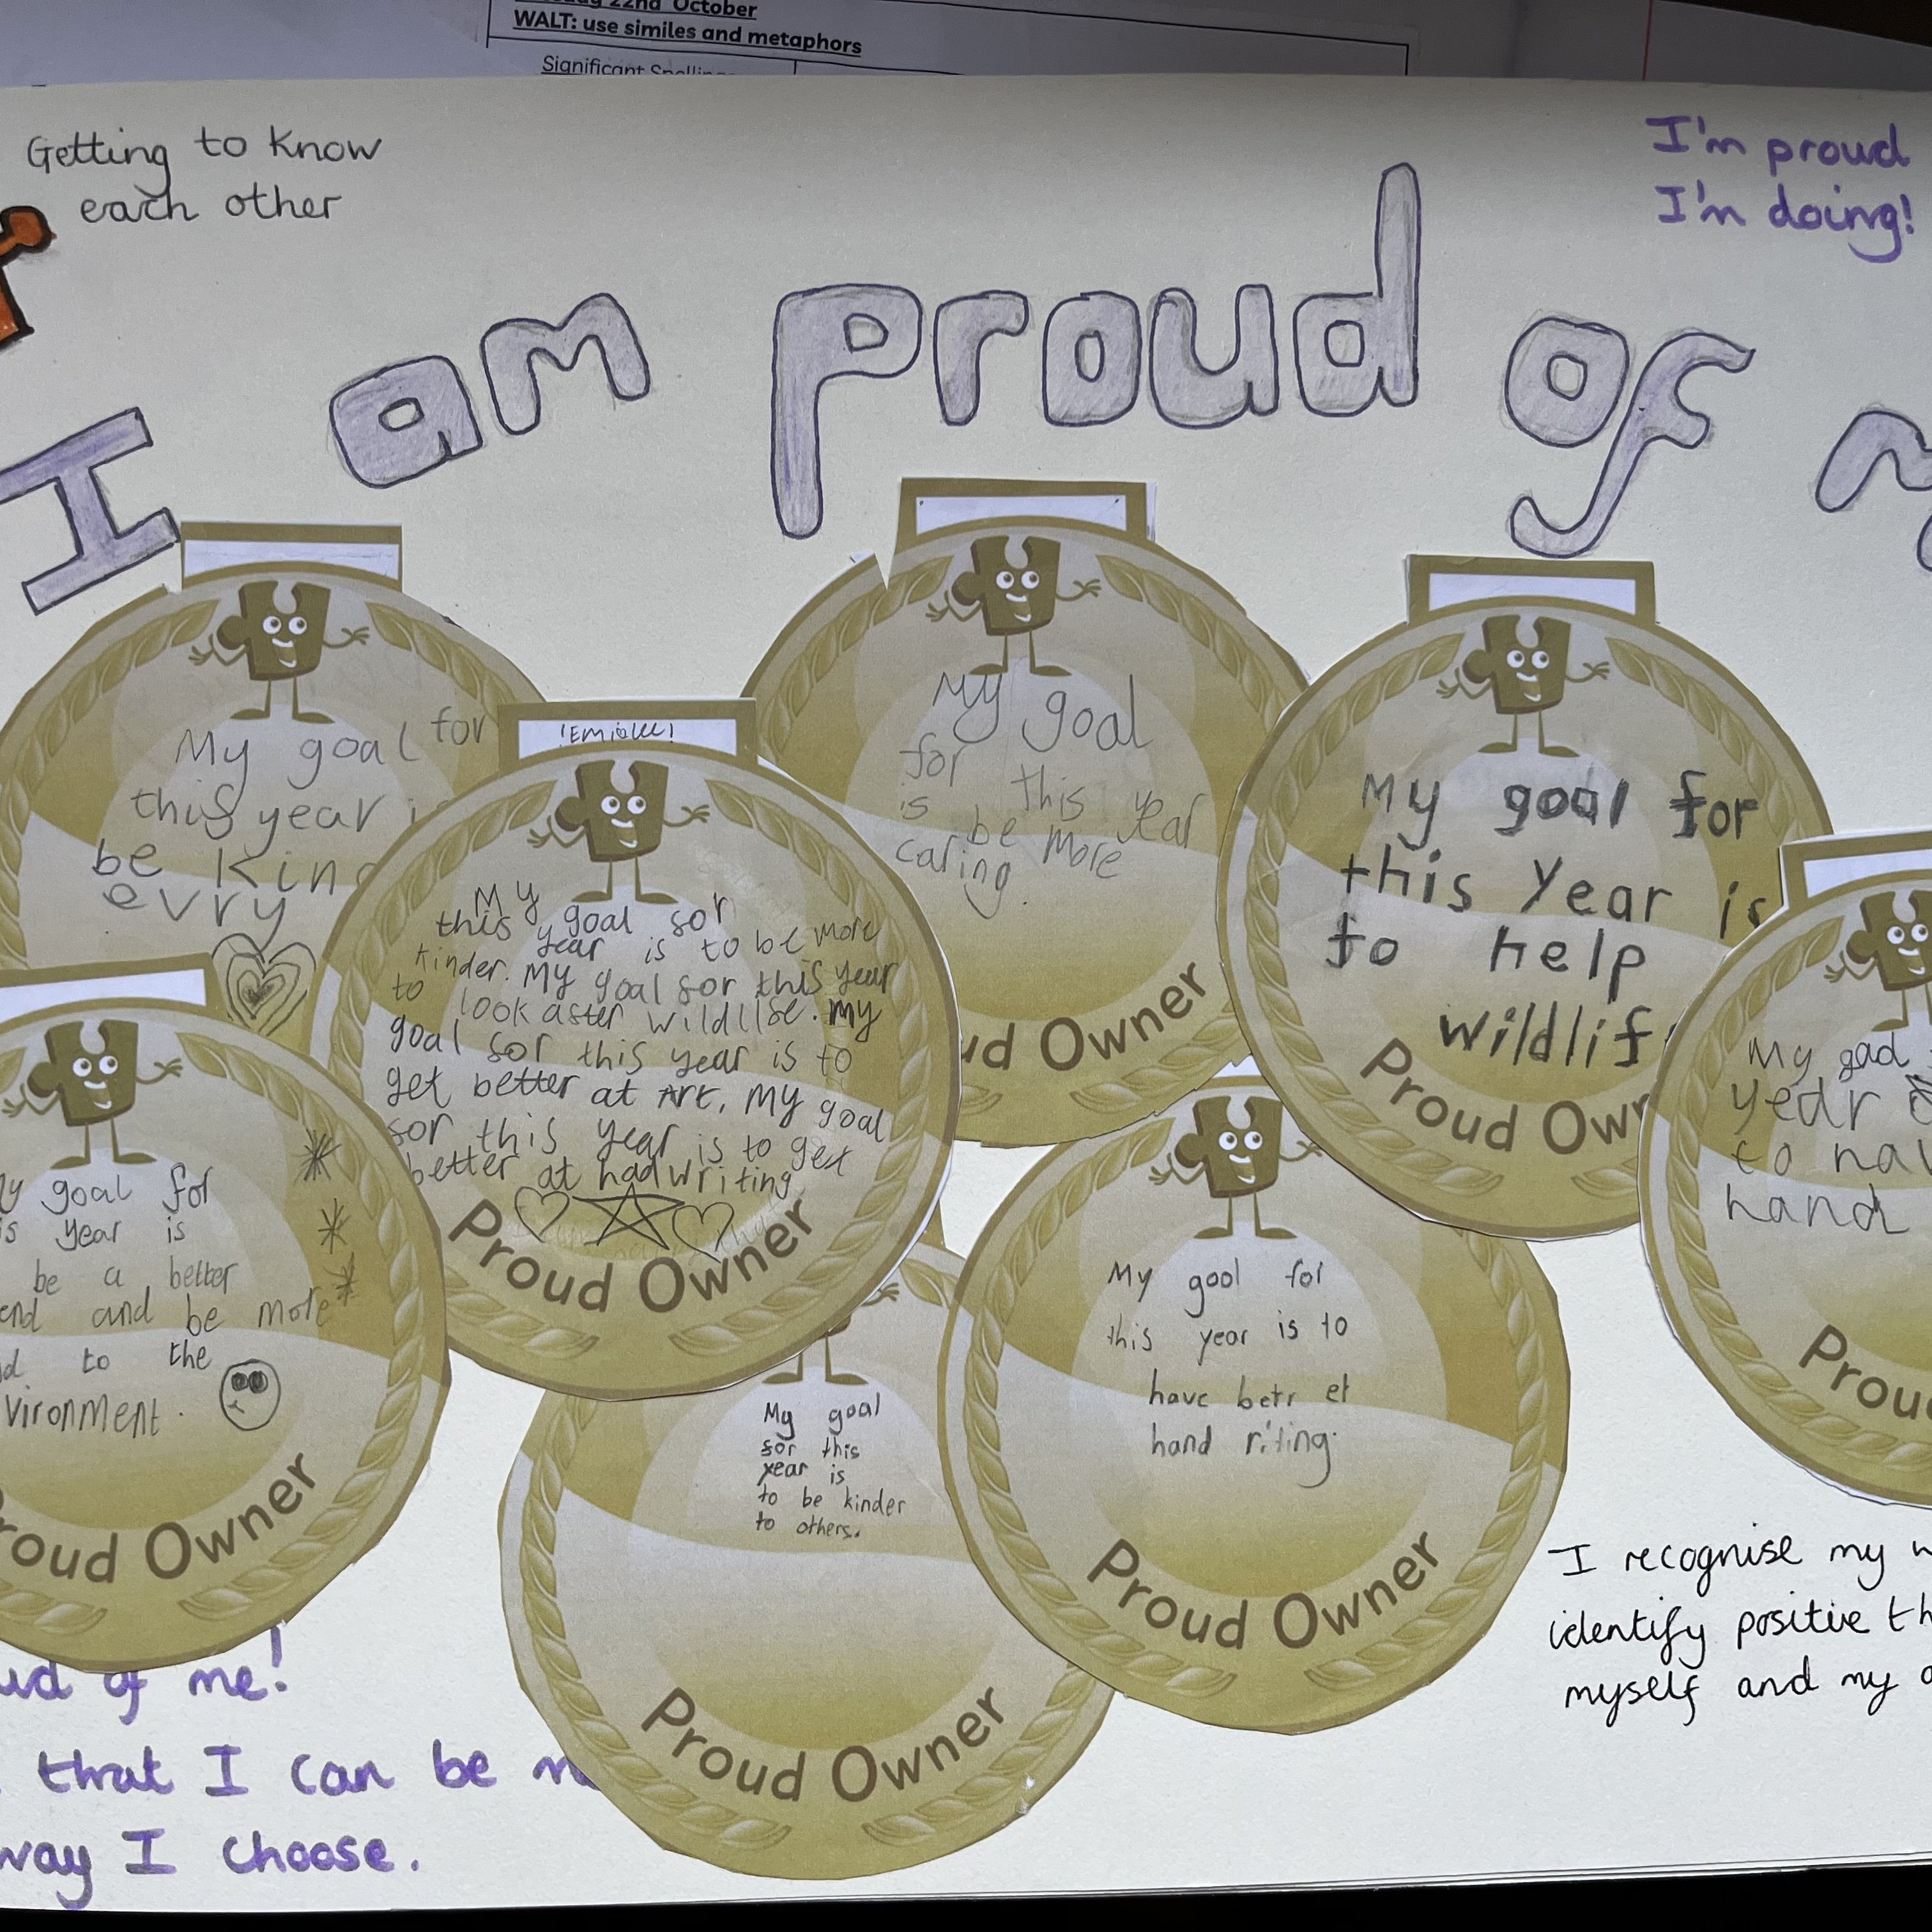 22nd October
WALT: use similes and metaphors
Significant
Getting to know
each other
I'm proud
I'm doing!
I am proud of
My goal for
this year
be
evry
!Emiolee!
My
goal for
this year is to be more
kinder. My goal for this year
to look after wildlife. My
goal for this year is to
get better at Art, My goal
for this year is to get
better at hadwriting
Proud Owner
My goal
for this year
is be more
caring.
Owner
My goal for
this Year is
to help
wildlif
Proud
My
year
to
hand
goal for
year is
be a better
and be more
to the
Owner
My goal
for this
year is
to be kinder
to others.
Proud Owner
My gool for
this year is to
have betr et
hand riting.
Proud Owner
I recognise my
identify positive
myself and my
of me!
that I can be
way I choose.